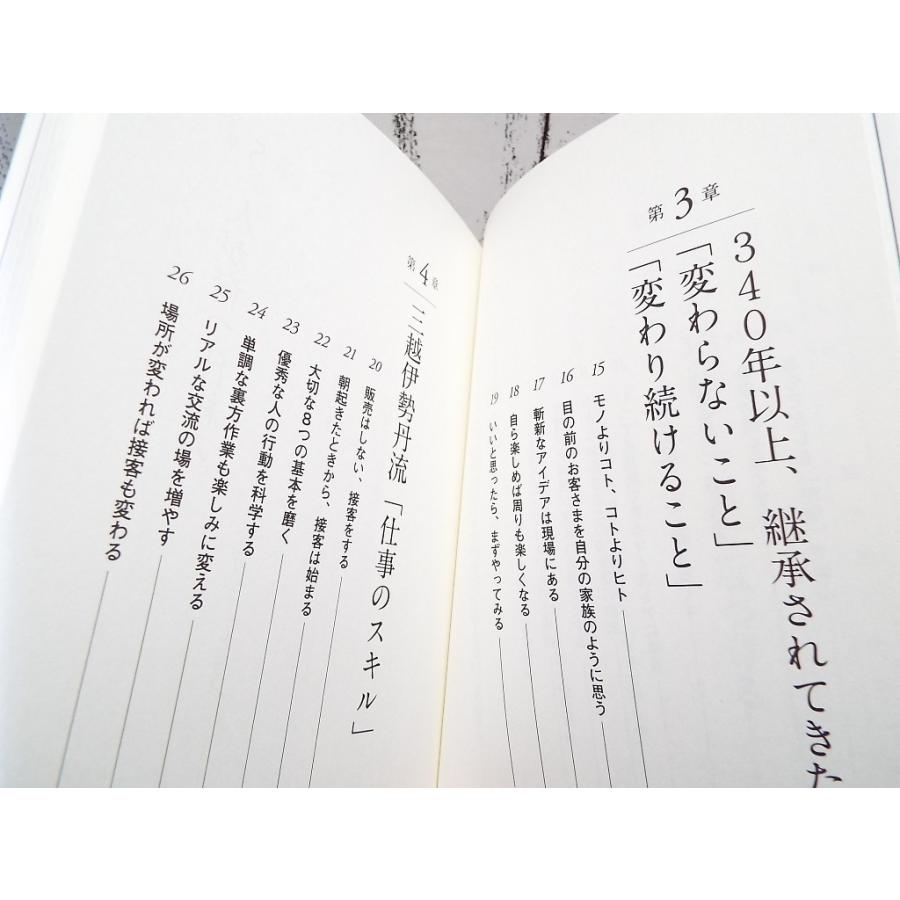 第3章
340年以上、継承されてきた
「変わらないこと」
「変わり続けること」
15 モノよりコト、コトよりヒト
16 目の前のお客さまを自分の家族のように思う
17 斬新なアイデアは現場にある
18 自ら楽しめば周りも楽しくなる
19 いいと思ったら、まずやってみる
第4章
三越伊勢丹流「仕事のスキル」
20 販売はしない、接客をする
21 朝起きたときから、接客は始まる
22 大切な8つの基本を磨く
23 優秀な人の行動を科学する
24 単調な裏方作業も楽しみに変える
25 リアルな交流の場を増やす
26 場所が変われば接客も変わる